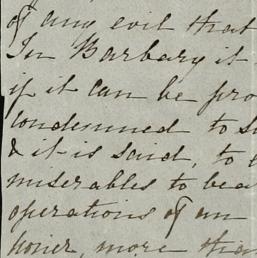 of any evil that
In Barbary it
if it can be pro
condemned to su
& it is said, to
miserables to bea
operations of an
honer, more than